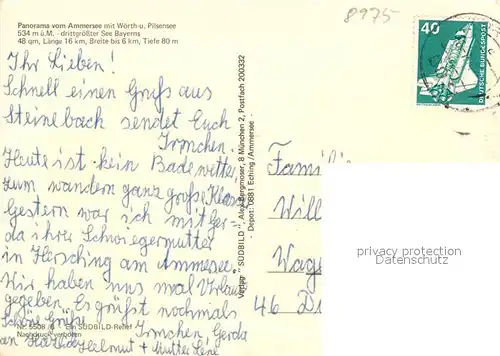 Panorama vom Ammersee mit Wörth- u. Pilsensee
534 m ü.M. - drittgrößter See Bayerns
48 qm, Länge 16 km, Breite bis 6 km, Tiefe 80 m
8975
40
DEUTSCHE BUNDESPOST
Ihr Lieben!
Schnell einen Gruß aus
Steinebach sendet Euch
Irmchen.
Heute ist kein Badewetter,
zum wandern ganz große Klasse
Gestern war ich mit Ger=
da ihrer Schwiegermutter
in Hersching am Ammersee.
Wir haben uns mal Urlaub
gegeben. Es grüßt nochmals
Schöne Grüße Irmchen, Gerda
an Helmut + Mutter Lene
Nr. 5508 Ein SÜDBILD-Relief
Nachdruck verboten
Verlag "SÜDBILD", Alex Bergmoser, 8 München 2, Postfach 200332
- Depot: 0881 Eching/Ammersee
Famil
Will
Wag
46 D
privacy protection
watermark